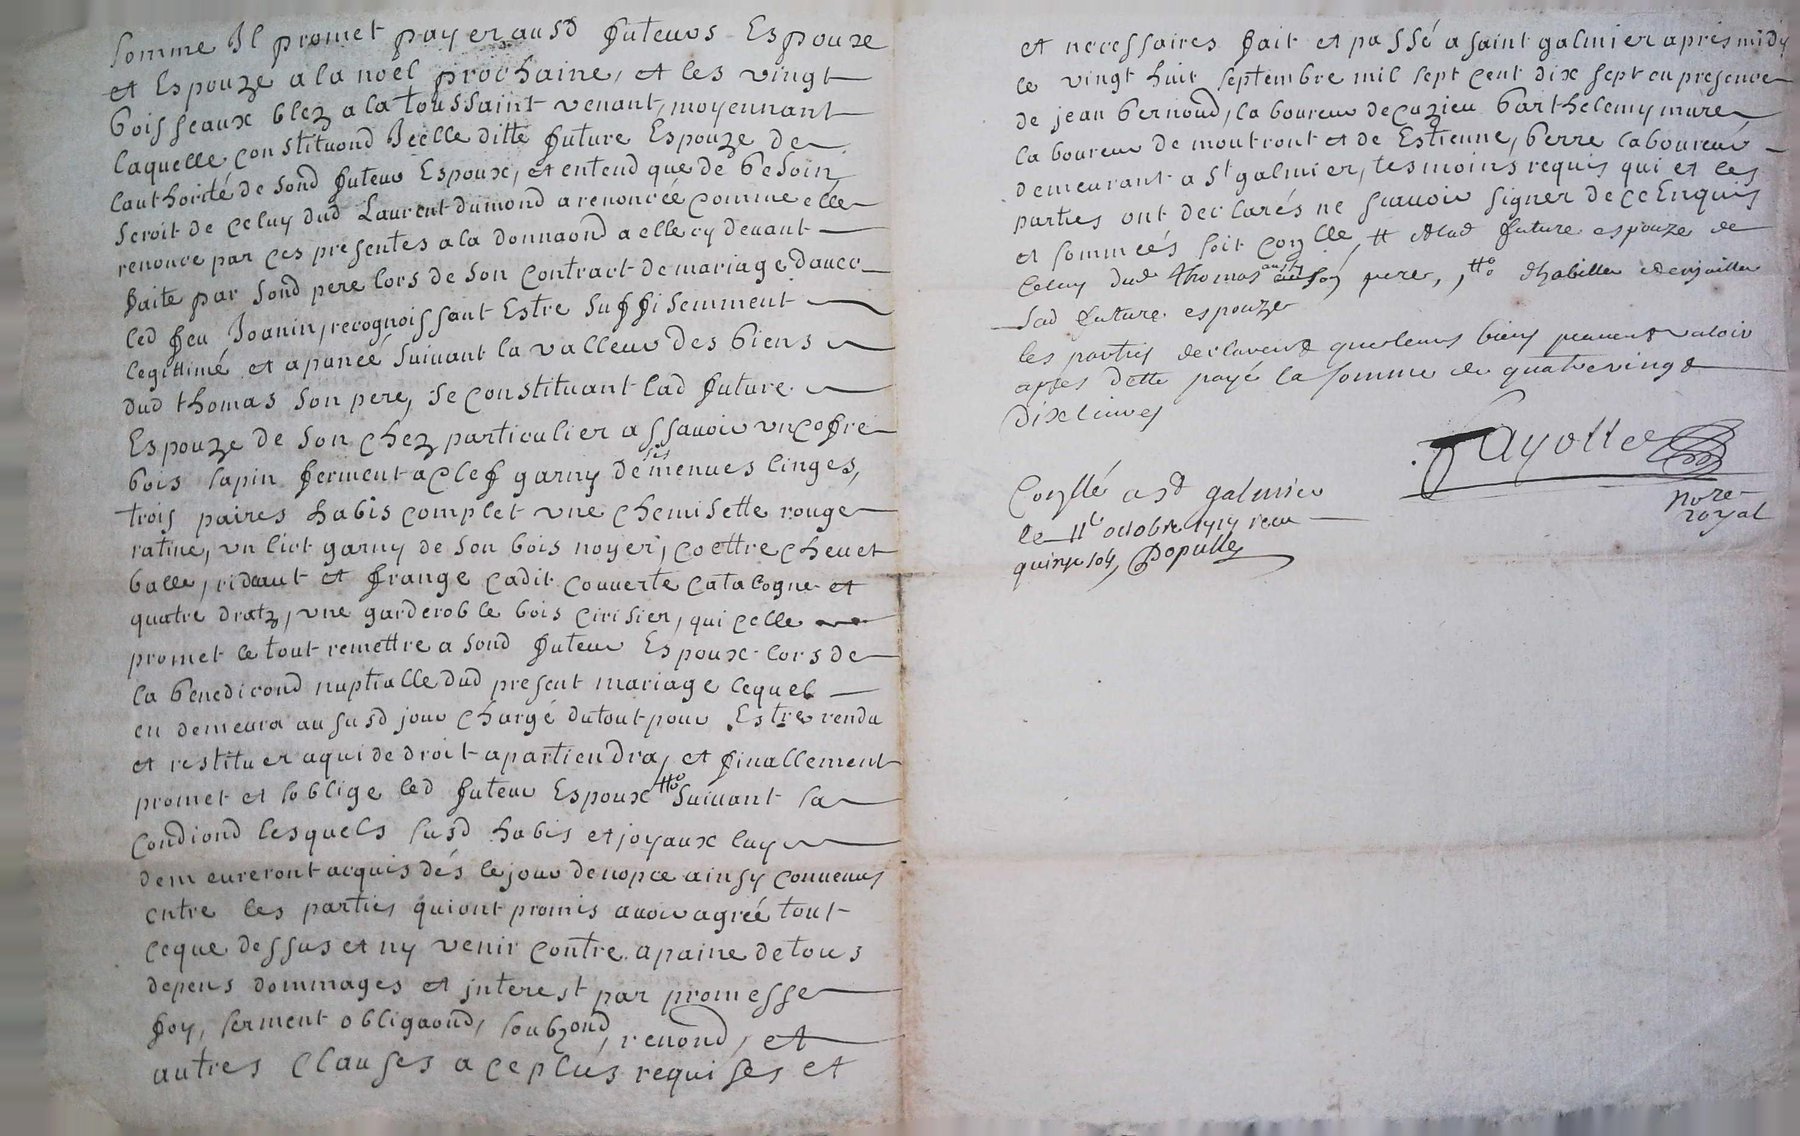 somme Il promet payer ausd futeurs Espoux
et Espouze a la noel prochaine, et les vingt
boisseaux blez a la toussaint venant, moyennant
laquelle constituond Icelle ditte future Espouze de
lauthorité de sond futeur Espoux, et entend que de besoin
seroit de celuy dud Laurent dumond a renoncée comme elle
renonce par ces presentes a la donnaond a elle cy devant
faite par sond pere lors de son contract de mariage davec
led feu Joanin, recognoissant Estre suffisemment
legittimé et apaneé suivant la valleur des biens
dud thomas son pere, se constituant lad future
Espouze de son chez particulier assavoir un cofre
bois sapin ferment a clef garny de ses menues linges,
trois paires habis complet une chemisette rouge
ratine, un lict garny de son bois noyer, coettre chevet
balle, rideaut et frange cadit couverte catalogne et
quatre dratz, une garderoble bois cirisier, qui celle
promet le tout remettre a sond futeur Espoux lors de
la benedicond nuptialle dud present mariage lequel
en demeura au susd jour chargé du tout pour Estre rendu
et restituer a qui de droit apartiendra, et finallement
promet et soblige led futeur Espoux tto suivant sa
condiond lesquels susd habis et joyaux luy
demeureront acquis dés le jour de nopce ainsy convenus
entre les parties qui ont promis avoir agreé tout
ce que dessus et ny venir contre a paine de tous
depens dommages et interest par promesse
foy, serment obligaond, soubzond, renond, et
autres clauses a ce plus requises et
et necessaires fait et passé a saint galmier apres midy
le vingt huit septembre mil sept cent dix sept en presence
de jean bernond, laboureur de cuzieu barthelemy mure
laboureur de moutront et de Estienne, berre laboureur
demeurant a st galmier, tesmoins requis qui et les
parties ont declarés ne scavoir signer de ce Enquis
et sommeés soit conlle, # et lad future espouze de
celuy dud thomas son pere, tto dhabiller et enjoailler
sad future espouze
les parties declarent que leurs biens peuvent valoir
apres dette payé la somme de quatre vingt
dix livres
Fayolle
nore
royal
Conllé a st galmier
le 11e octobre 1717 recu
quinze sols, Populle